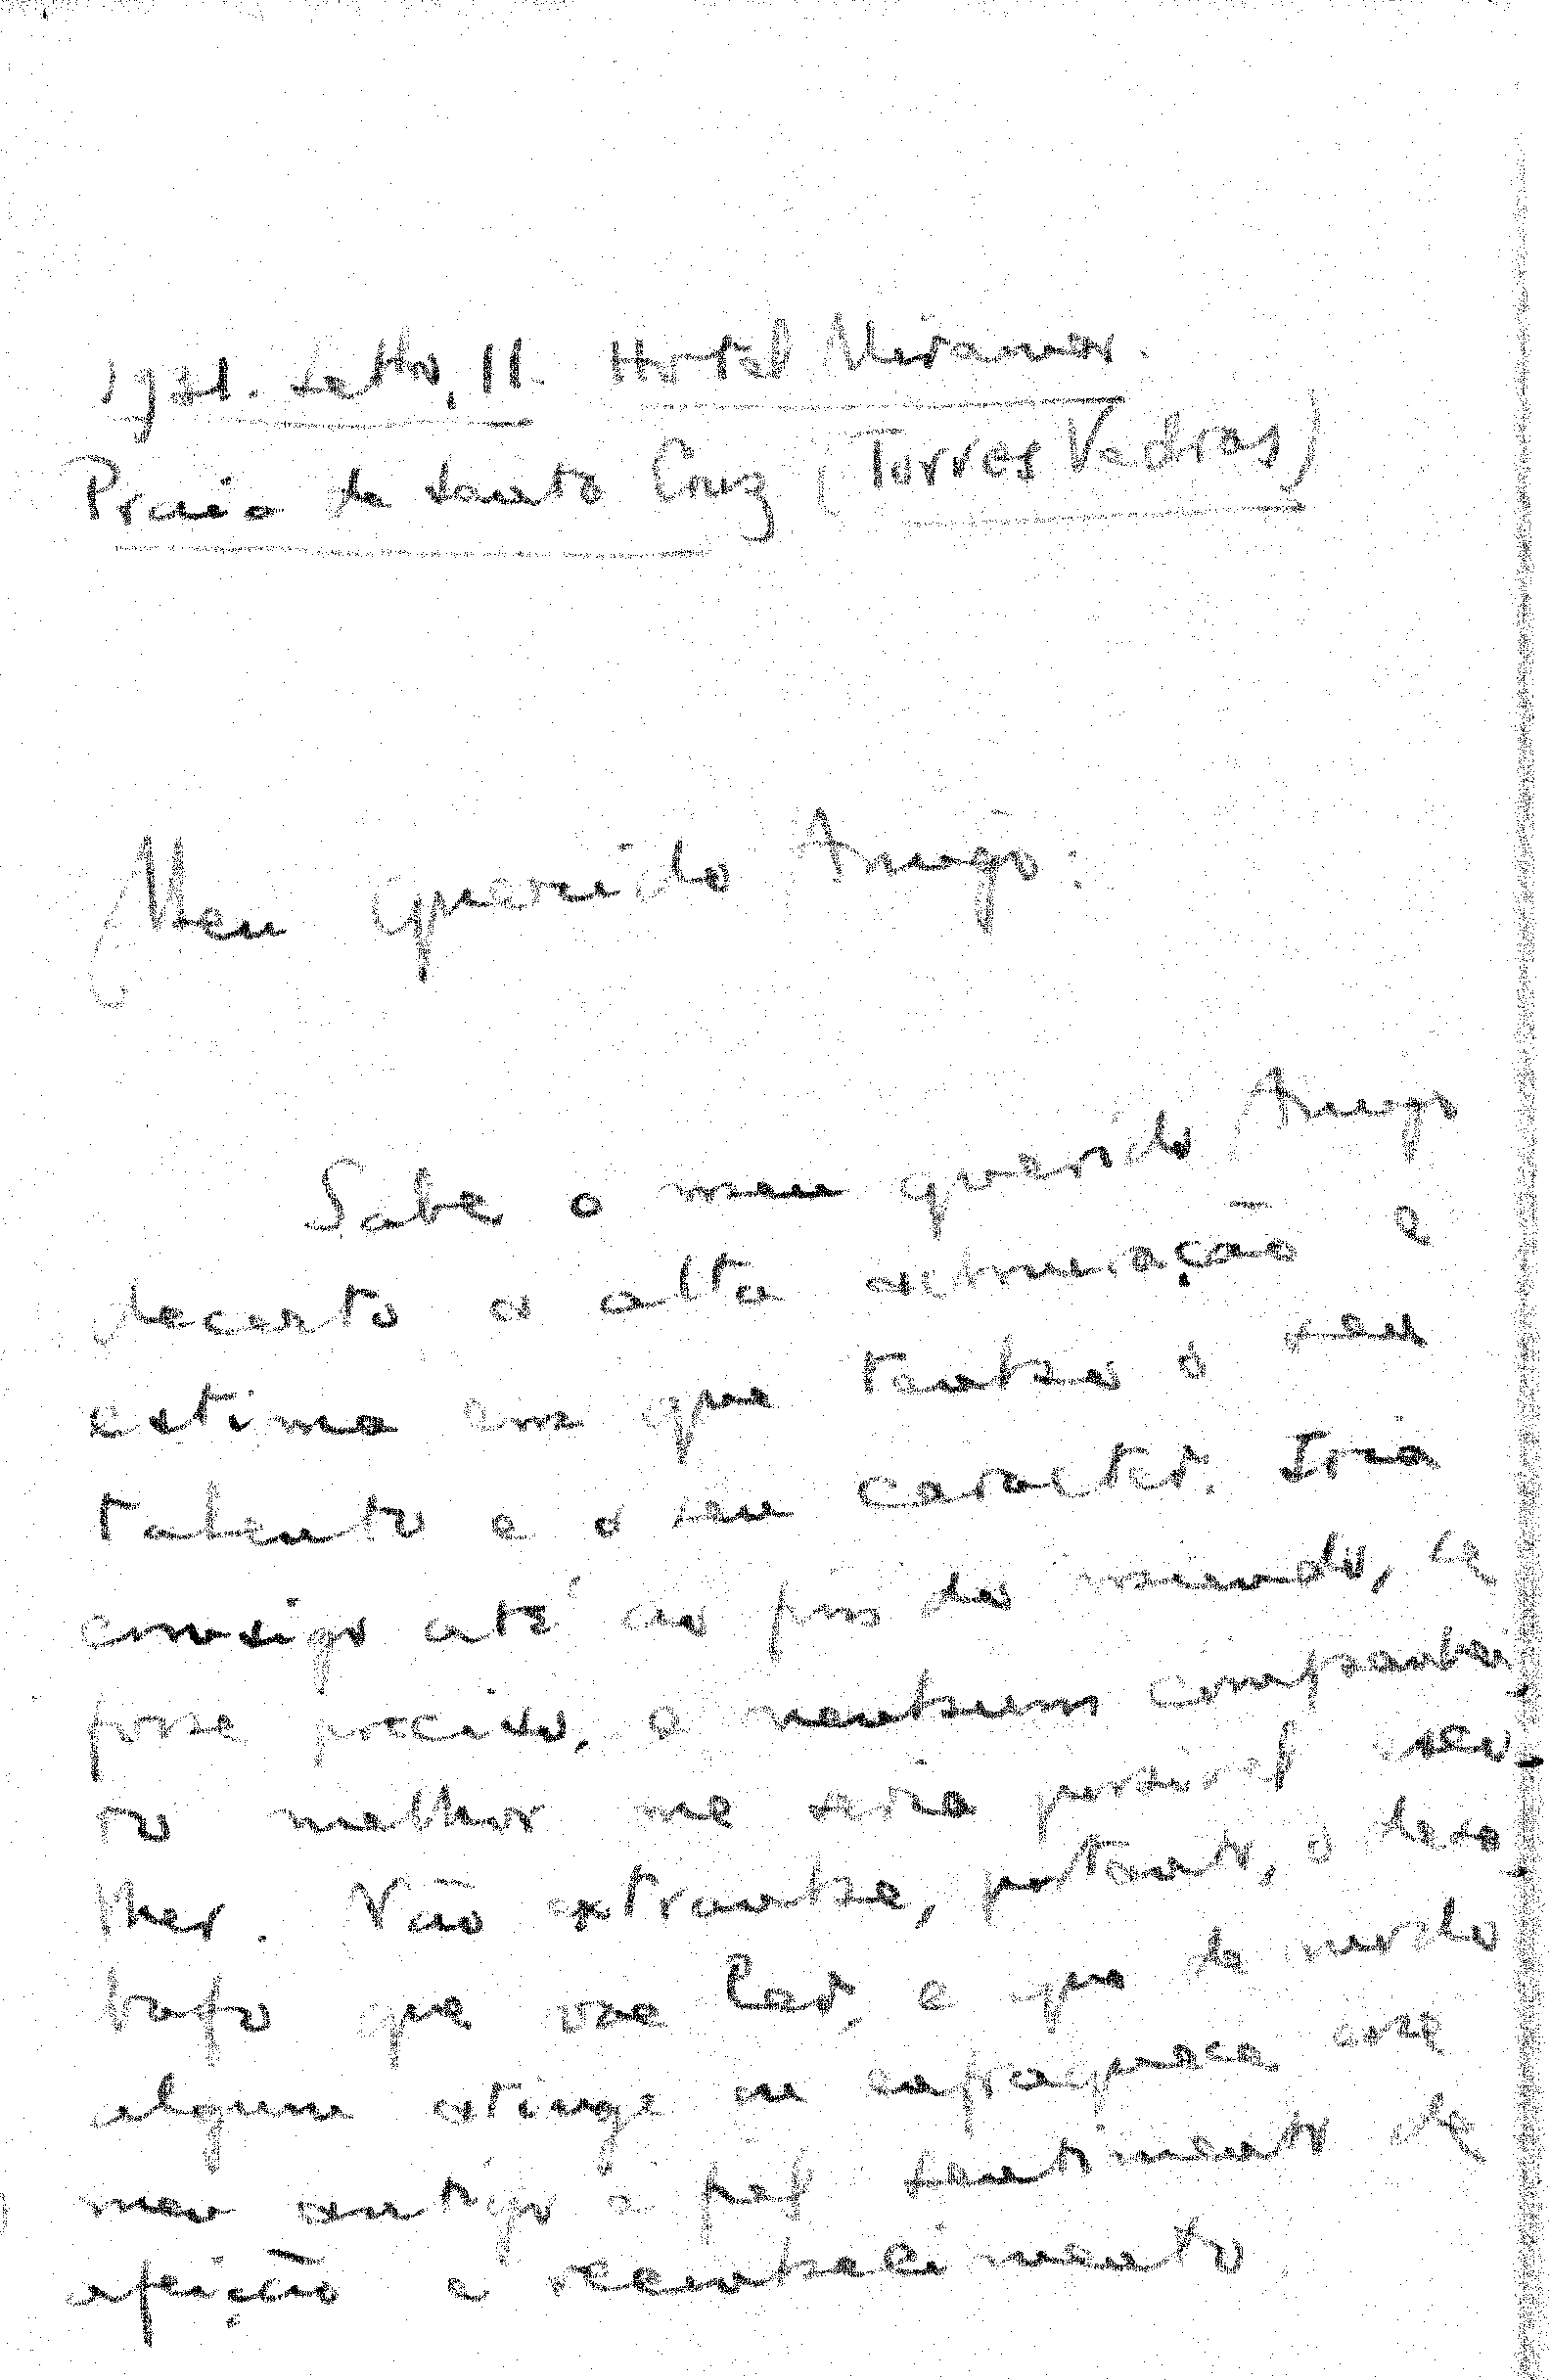 1921. Setbro, 11. Hotel Miramar.
Praia de Santa Cruz (Torres Vedras)
Meu querido Amigo:
Sabe o meu querido Amigo
decerto a alta admiração e
estima em que tenho o seu
talento e o seu caracter. Iria
comsigo até ao fim do mundo, se
fosse preciso, e nenhum companhei
ro melhor me seria possivel esco-
lher. Não extranhe, portanto, o desa-
bafo que vae ler, e que de modo
algum atinge ou enfraquece esse
meu antigo e fiel sentimento de
afeição e reconhecimento